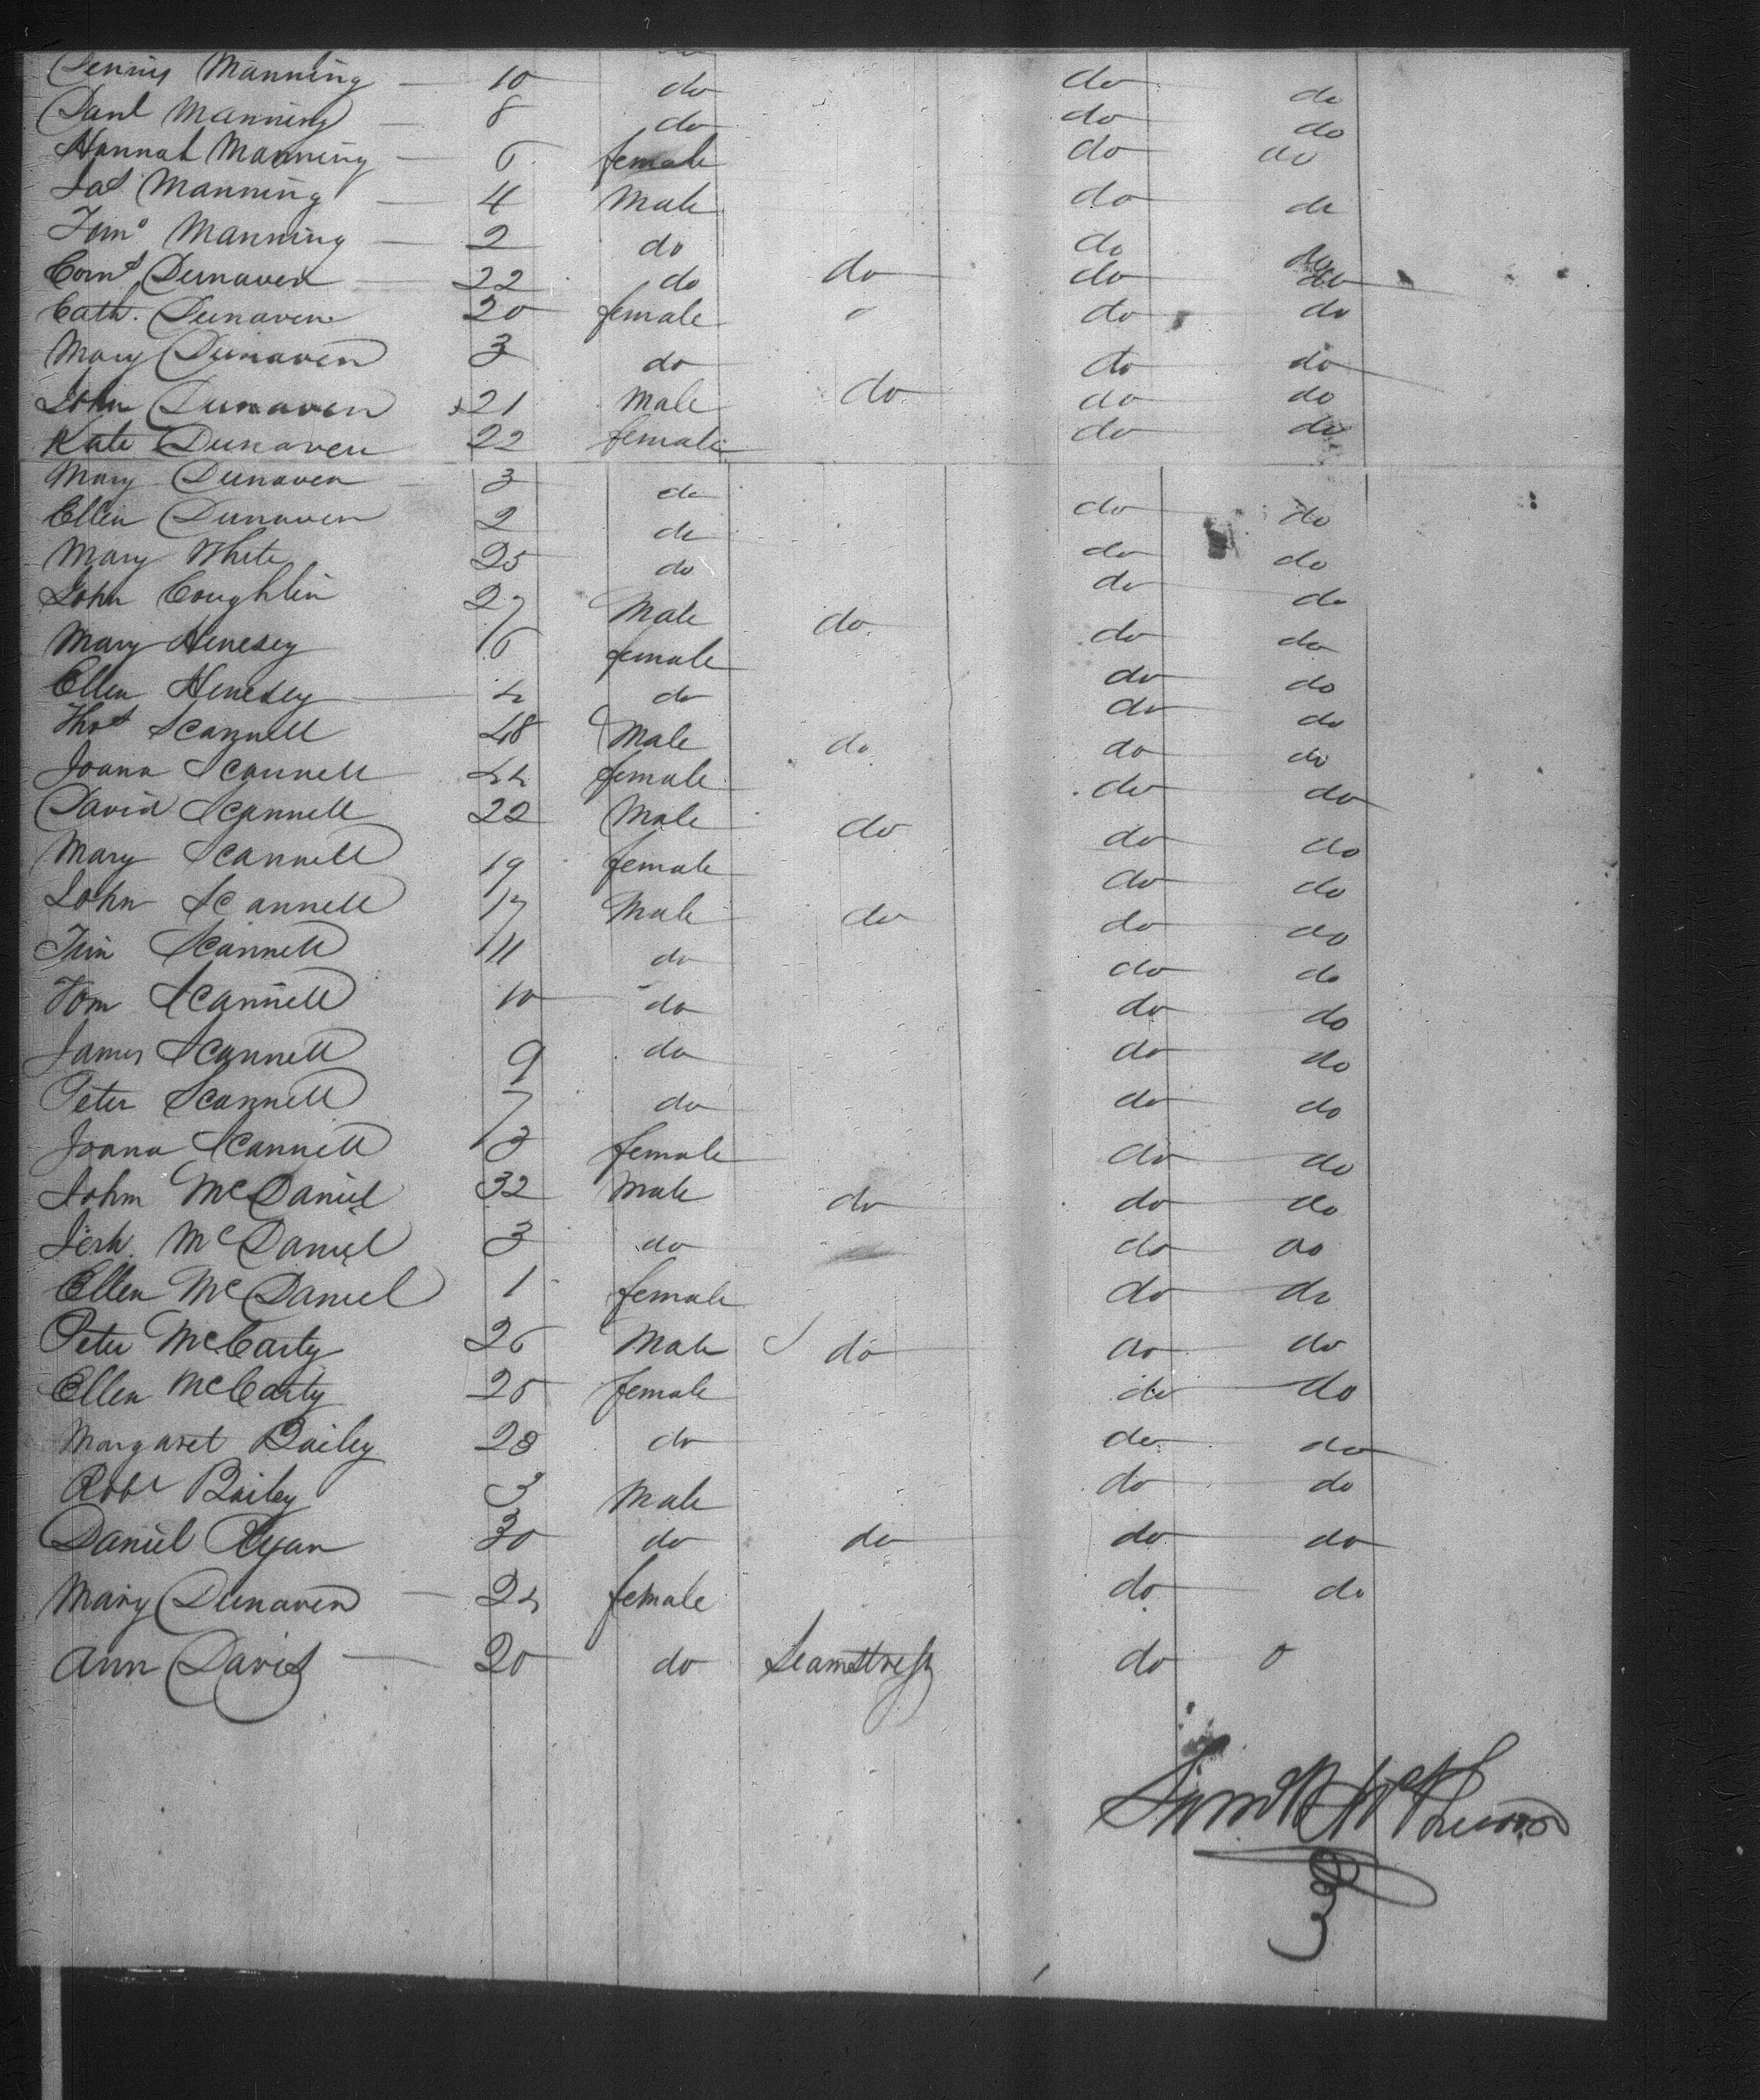 Dennis Manning — 10 do do do
Danl Manning — 8 do do do
Hannah Manning — 6 female do do
Jas Manning — 4 Male do do
Tomo Manning — 2 do do do
Corns Dunaven — 22 do do do do
Cath. Dunaven 20 female do do
Mary Dunaven 3 do do do
John Dunaven 21 Male do do do
Kate Dunaven 22 female do do
Mary Dunaven 3 do
Ellen Dunaven 2 do do do
Mary White 25 do do do
John Coughlin 27 Male do do do
Mary Henesey 6 female do do
Ellen Henesey 4 do do do
Thos Scannell 48 Male do do do
Joana Scannell 44 female do do
David Scannell 22 Male do do do
Mary Scannell 19 female do do
John Scannell 17 Male do do do
Tim Scannell 11 do do do
Tom Scannell 10 do do do
James Scannell 9 do do do
Peter Scannell 7 do do do
Joana Scannell 3 female do do
John McDaniel 32 Male do do do
Jerh. McDaniel 3 do do do
Ellen McDaniel 1 female do do
Peter McCarty 26 Male do do do
Ellen McCarty 25 female do do
Margaret Bailey 28 do do do
Robt Bailey 3 Male do do
Daniel Ryan 30 do do do do
Mary Dunaven — 24 female do do
Ann Davis — 20 do Seamstress do